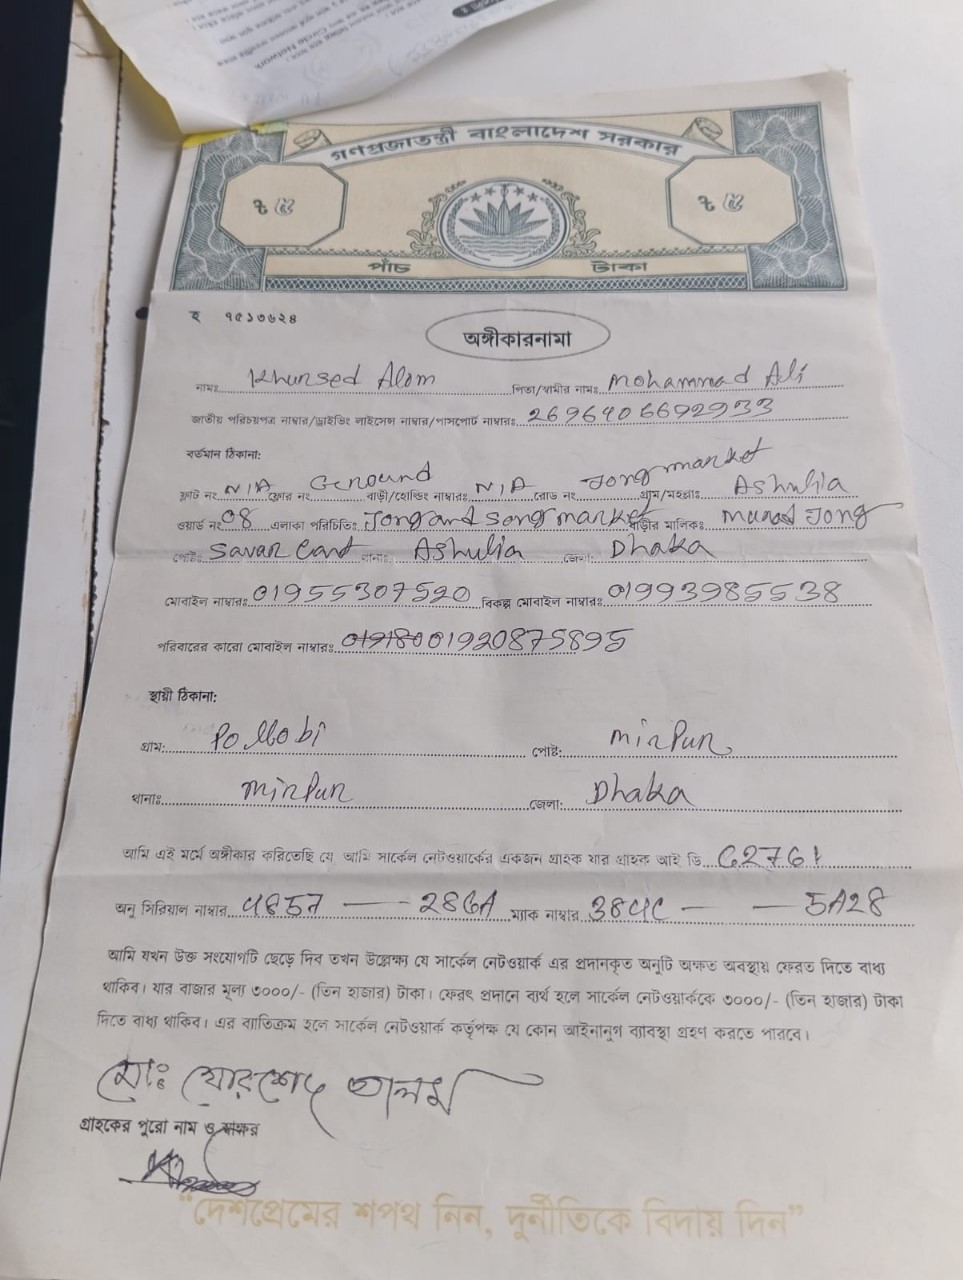 গণপ্রজাতন্ত্রী বাংলাদেশ সরকার
৳ ৫ ৳ ৫
পাঁচ টাকা
হ ৭৫১৩৬২৪
অঙ্গীকারনামা
নামঃ Khursed Alom পিতা/স্বামীর নামঃ Mohammad Ali
জাতীয় পরিচয়পত্র নাম্বার/ড্রাইভিং লাইসেন্স নাম্বার/পাসপোর্ট নাম্বারঃ 2696406692933
বর্তমান ঠিকানা:
ফ্লাট নং N/A ফ্লোর নং Geround বাড়ী/হোল্ডিং নাম্বারঃ N/A রোড নং Jong market গ্রাম/মহল্লাঃ Ashulia
ওয়ার্ড নং 08 এলাকা পরিচিতিঃ Jong and song market বাড়ীর মালিকঃ Jong
পোষ্টঃ Savar থানাঃ Ashulia জেলা: Dhaka
মোবাইল নাম্বারঃ 01955307520 বিকল্প মোবাইল নাম্বারঃ 01993985538
পরিবারের কারো মোবাইল নাম্বারঃ 01920875895
স্থায়ী ঠিকানা:
গ্রাম: Pollobi পোষ্ট: mirpur
থানাঃ mirpur জেলা: Dhaka
আমি এই মর্মে অঙ্গীকার করিতেছি যে আমি সার্কেল নেটওয়ার্কের একজন গ্রাহক যার গ্রাহক আই ডি C2761
অনু সিরিয়াল নাম্বার 4857 — 286A ম্যাক নাম্বার 384C — — 5A28
আমি যখন উক্ত সংযোগটি ছেড়ে দিব তখন উল্লেক্ষ্য যে সার্কেল নেটওয়ার্ক এর প্রদানকৃত অনুটি অক্ষত অবস্থায় ফেরত দিতে বাধ্য
থাকিব। যার বাজার মূল্য ৩০০০/- (তিন হাজার) টাকা। ফেরৎ প্রদানে ব্যর্থ হলে সার্কেল নেটওয়ার্ককে ৩০০০/- (তিন হাজার) টাকা
দিতে বাধ্য থাকিব। এর ব্যাতিক্রম হলে সার্কেল নেটওয়ার্ক কর্তৃপক্ষ যে কোন আইনানুগ ব্যাবস্থা গ্রহণ করতে পারবে।
মোঃ খোরশেদ আলম
গ্রাহকের পুরো নাম ও স্বাক্ষর
"দেশপ্রেমের শপথ নিন, দুর্নীতিকে বিদায় দিন"